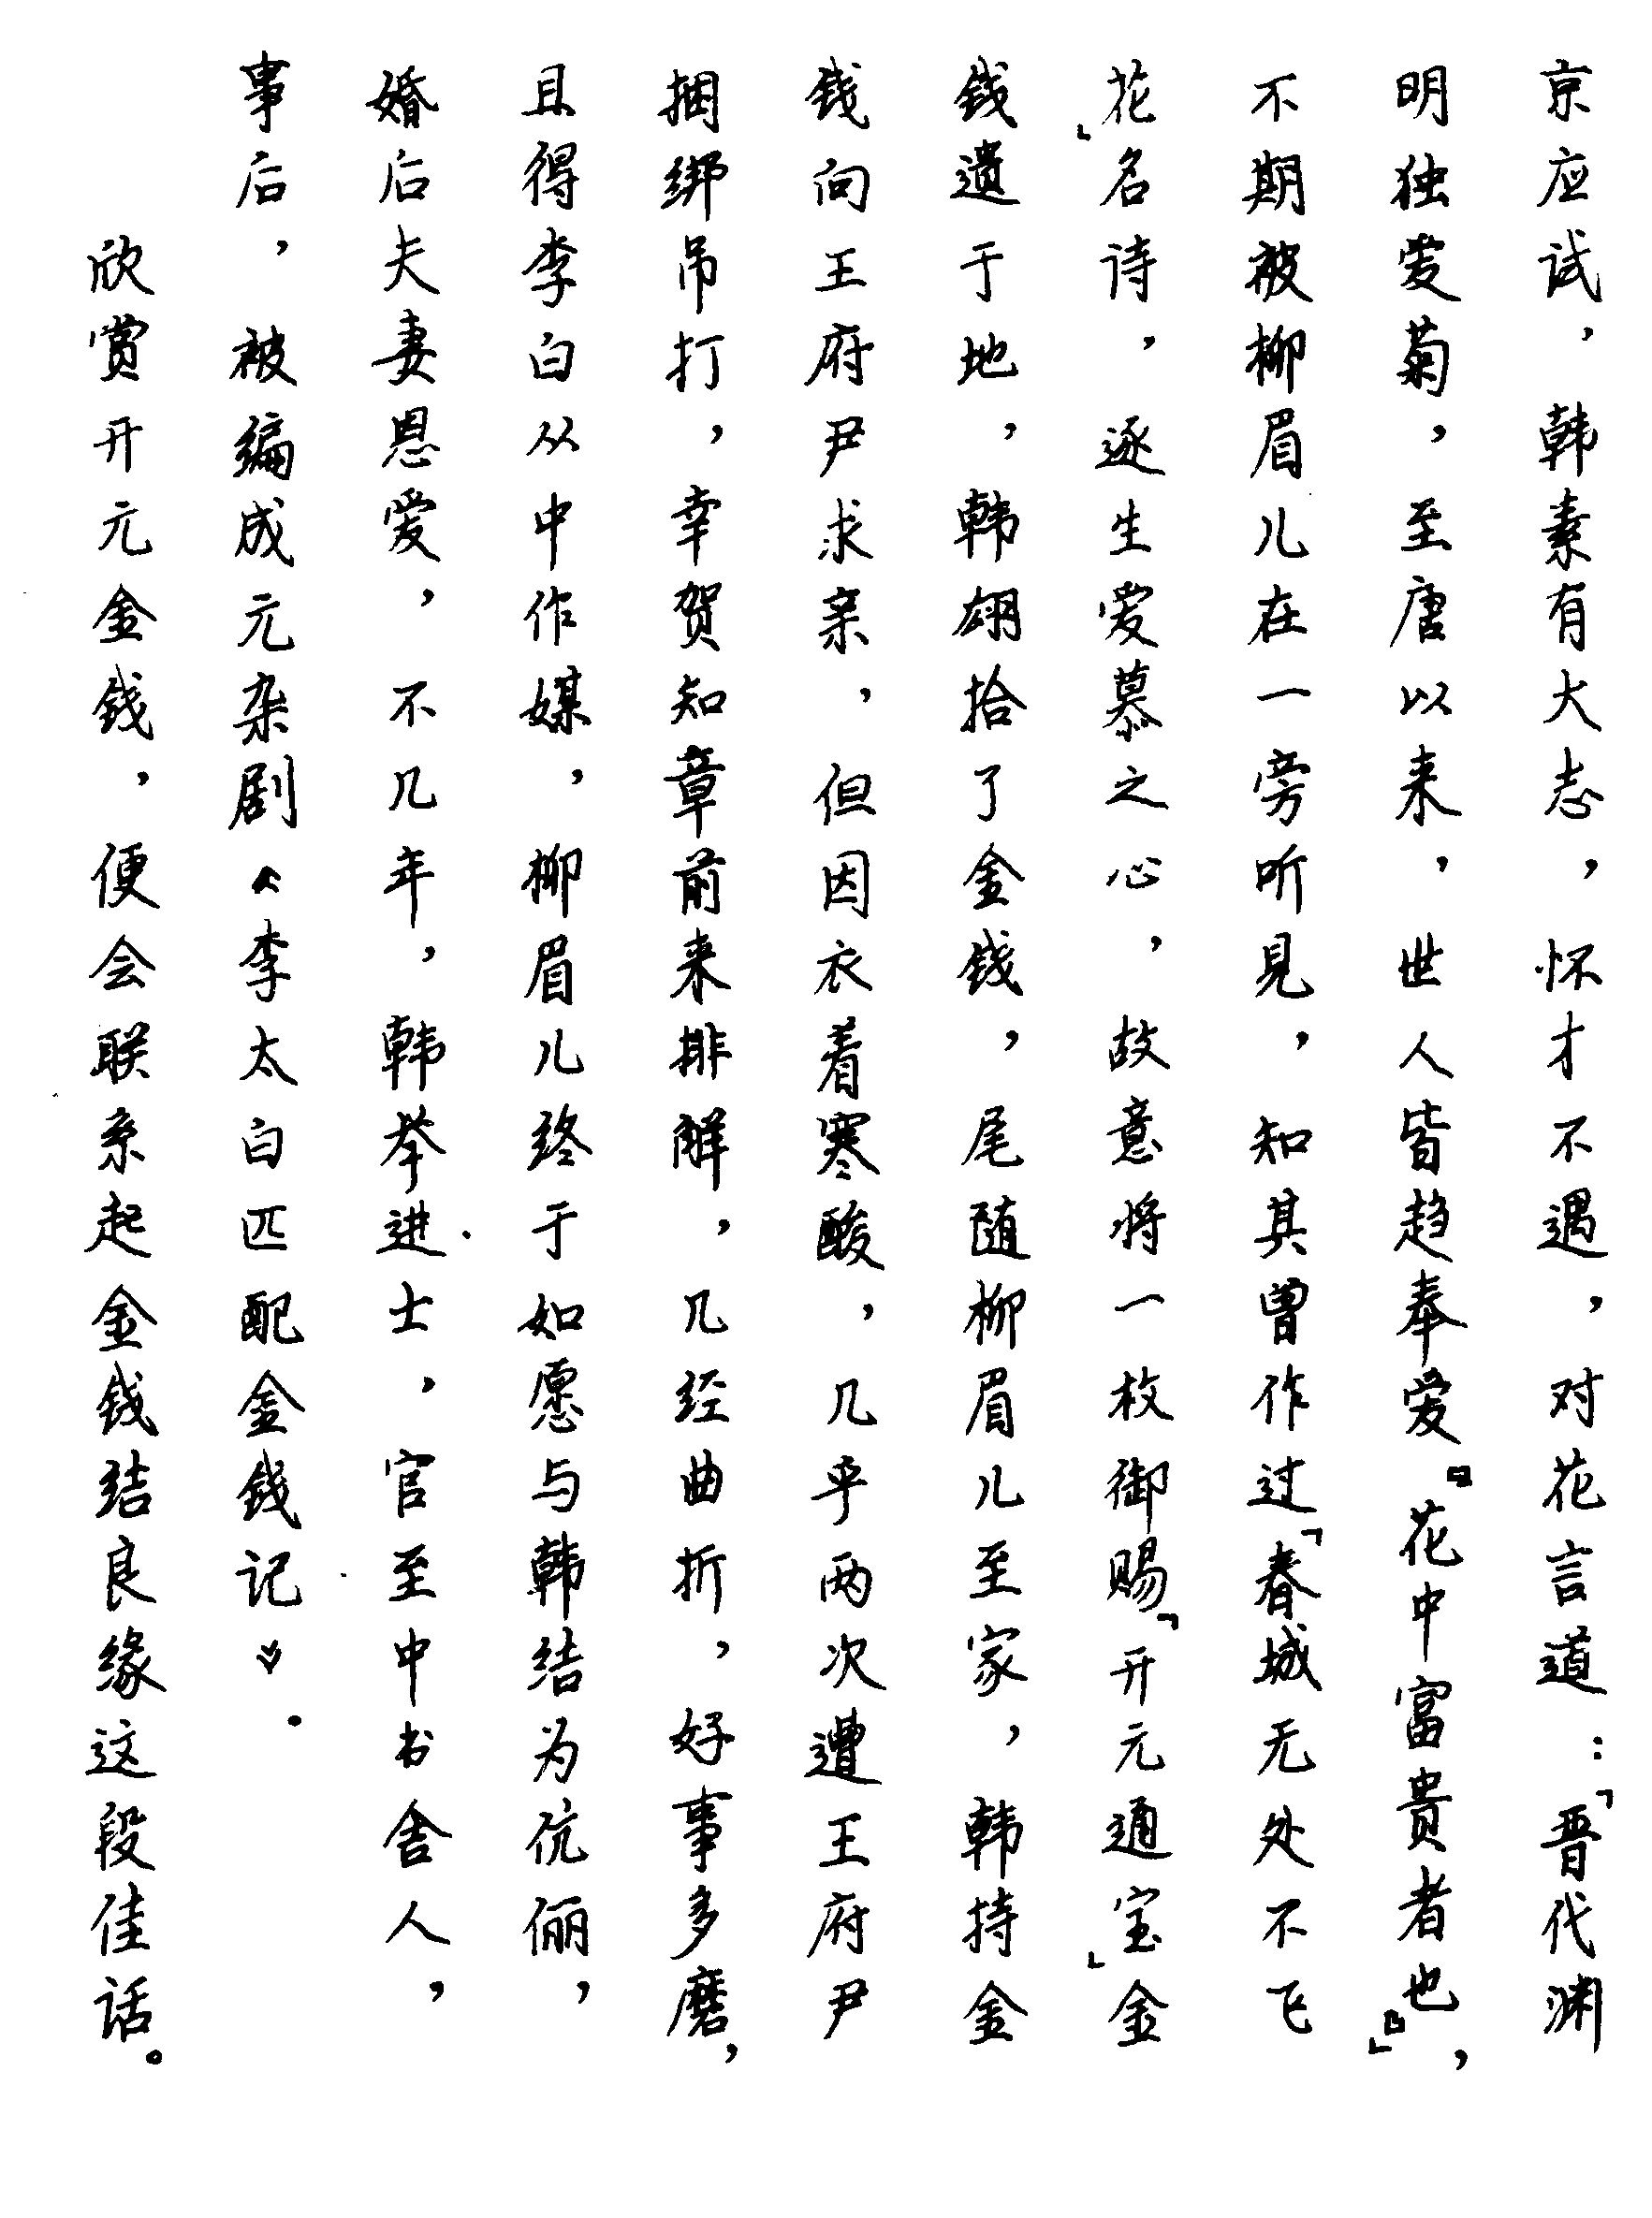 京应试，韩素有大志，怀才不遇，对花言道：「晋代渊
明独爱菊，至唐以来，世人皆趋奉爱『花中富贵者也』」，
不期被柳眉儿在一旁听見，知其曾作过「春城无处不飞
花」名诗，逐生爱慕之心，故意将一枚御赐「开元通宝」金
钱遗于地，韩翃拾了金钱，尾随柳眉儿至家，韩持金
钱向王府尹求亲，但因衣着寒酸，几乎两次遭王府尹
捆绑吊打，幸贺知章前来排解，几经曲折，好事多磨，
且得李白从中作媒，柳眉儿终于如愿与韩结为伉俪，
婚后夫妻恩爱，不几年，韩举进士，官至中书舍人，
事后，被编成元杂剧《李太白匹配金钱记》。
欣赏开元金钱，便会联系起金钱结良缘这段佳话。